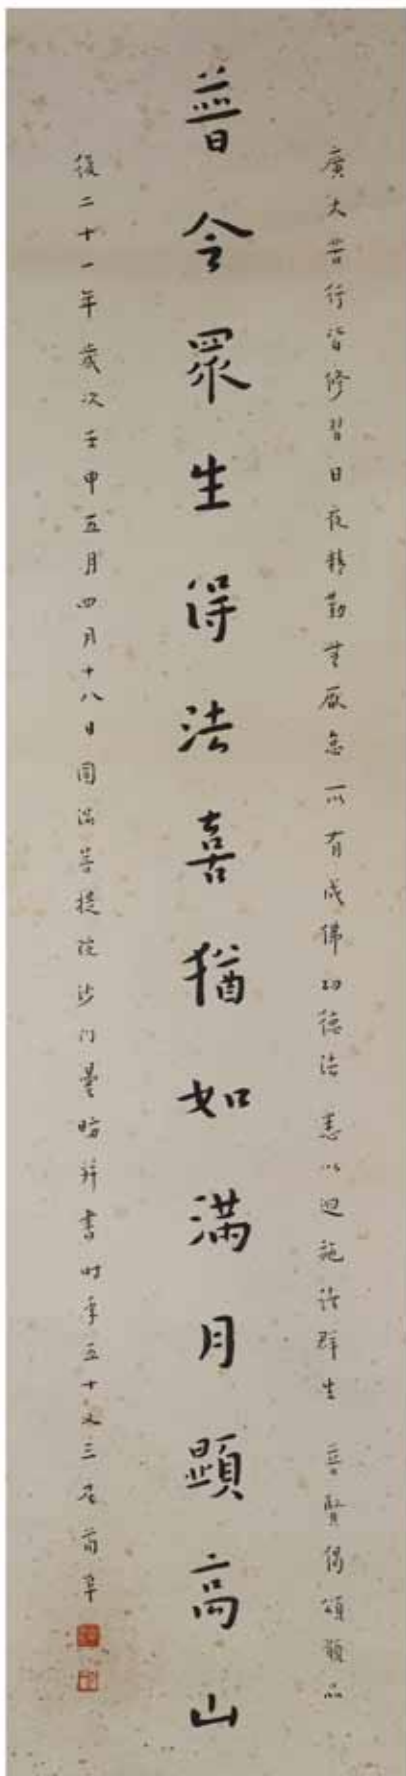 廣大苦行皆修習日夜精勤無厭怠所有成佛功德法悉以迴施諸群生普賢偈頌頴品
普令眾生得法喜猶如滿月顯高山
後二十一年歲次壬申五月四月十八日圓滿菩提院沙門曇昉并書时年五十又三居